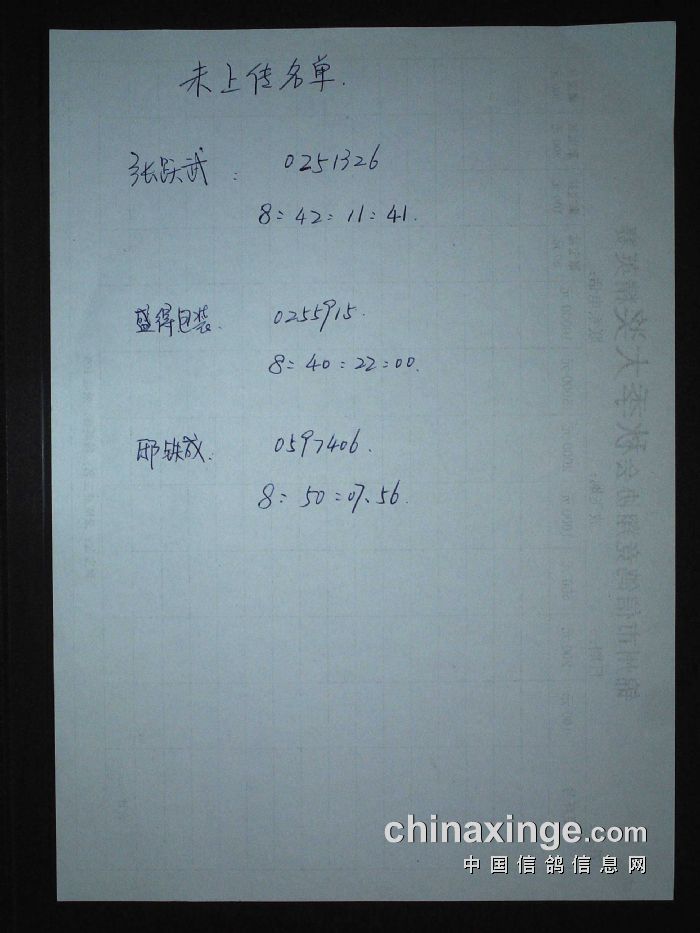 未上传名单.
张跃武: 0251326
8:42:11:41.
盛得包装. 0255915.
8:40:22:00.
邢铁成. 0597406.
8:50:07.56.
chinaxinge.com
中国信鸽信息网